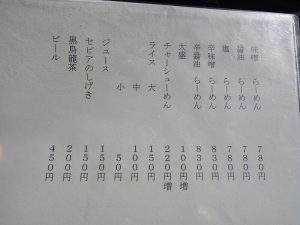 味噌 らーめん 780円
醤油 らーめん 780円
塩 らーめん 780円
辛味噌 らーめん 830円
辛醤油 らーめん 830円
大盛 100円増
チャーシューめん 220円増
ライス 大 150円
中 100円
小 50円
ジュース 150円
セピアのしげき 150円
黒烏龍茶 200円
ビール 450円